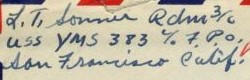 L. T. Sonner Rdm 3/c
USS YMS 383 % F. P.O.
San Francisco Calif.